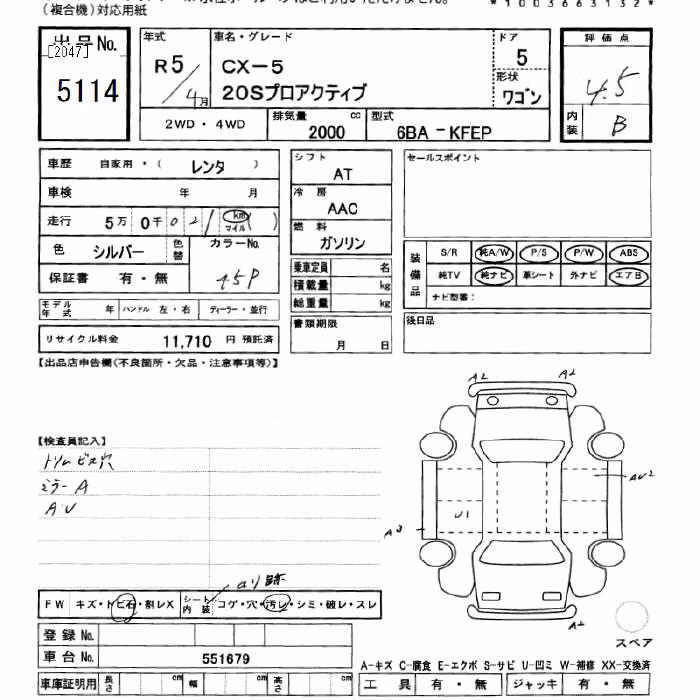 (複合機)対応用紙
*1003663132*
出品No.
[2047]
5114
年式
R5/4月
車名・グレード
CX-5
20Sプロアクティブ
ドア
5
形状
ワゴン
評価点
4.5
内装
B
2WD・4WD
排気量
2000
cc
型式
6BA-KFEP
車歴 自家用・( レンタ )
車検 年 月
走行 5万 0千 021 km マイル ( )
色 シルバー 色替 カラーNo.
45P
保証書 有・無
モデル年式 年 ハンドル 左・右 ディーラー・並行
リサイクル料金 11,710 円 預託済
シフト
AT
冷房
AAC
燃料
ガソリン
乗車定員 名
積載量 kg
総重量 kg
書類期限
月 日
セールスポイント
装備品
S/R 純A/W P/S P/W ABS
純TV 純ナビ 革シート 外ナビ エアB
ナビ型番:
後日品
【出品店申告欄(不良箇所・欠品・注意事項等)】
【検査員記入】
トリム ビス穴
ミラー A
AU
A2 A2
AU2
U1
A3
A2
スペア
aり跡
FW キズ・トビ石・割レX シート内装 コゲ・穴・汚レ・シミ・破レ・スレ
登録No.
車台No. 551679
車庫証明用 長さ cm 幅 cm 高さ cm
A-キズ C-腐食 E-エクボ S-サビ U-凹ミ W-補修 XX-交換済
工具 有・無 ジャッキ 有・無